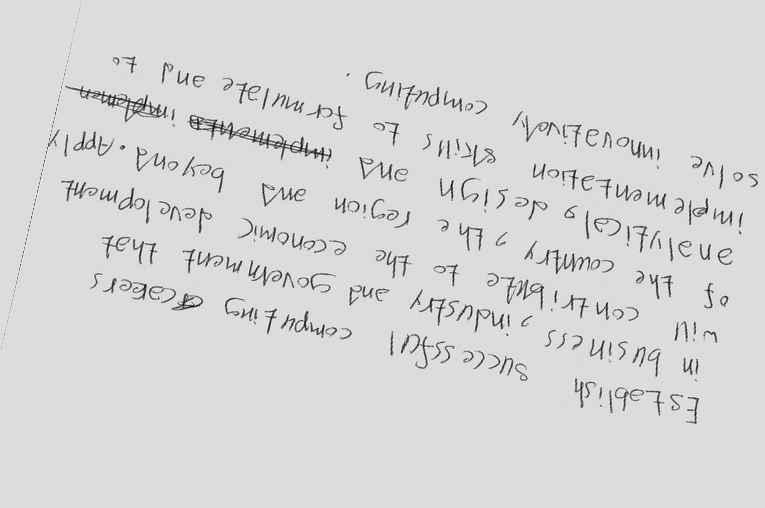 Establish successful computing caeers
in business, industry and government that
will contribute to the economic development
of the country, the region and beyond. Apply
analytical, design and implements implemen
implementation skills to formulate and to
solve innovatively computing.